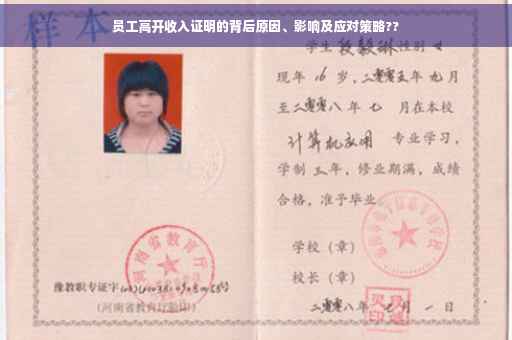 员工高开收入证明的背后原因、影响及应对策略??
样本
学生段毅琳性别女
现年16岁，二零零五年九月
至二零零八年七 月在本校
计算机应用 专业学习，
学制三年，修业期满，成绩
合格，准予毕业
学校（章）
校长（章）
二零零八年七月一日
河南省教育厅
豫教职专证字
（河南省教育厅验印）